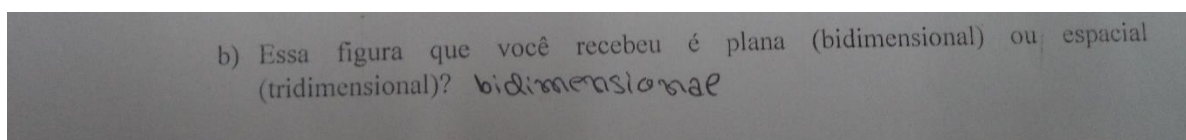 b) Essa figura que você recebeu é plana (bidimensional) ou espacial
(tridimensional)? bidimensional